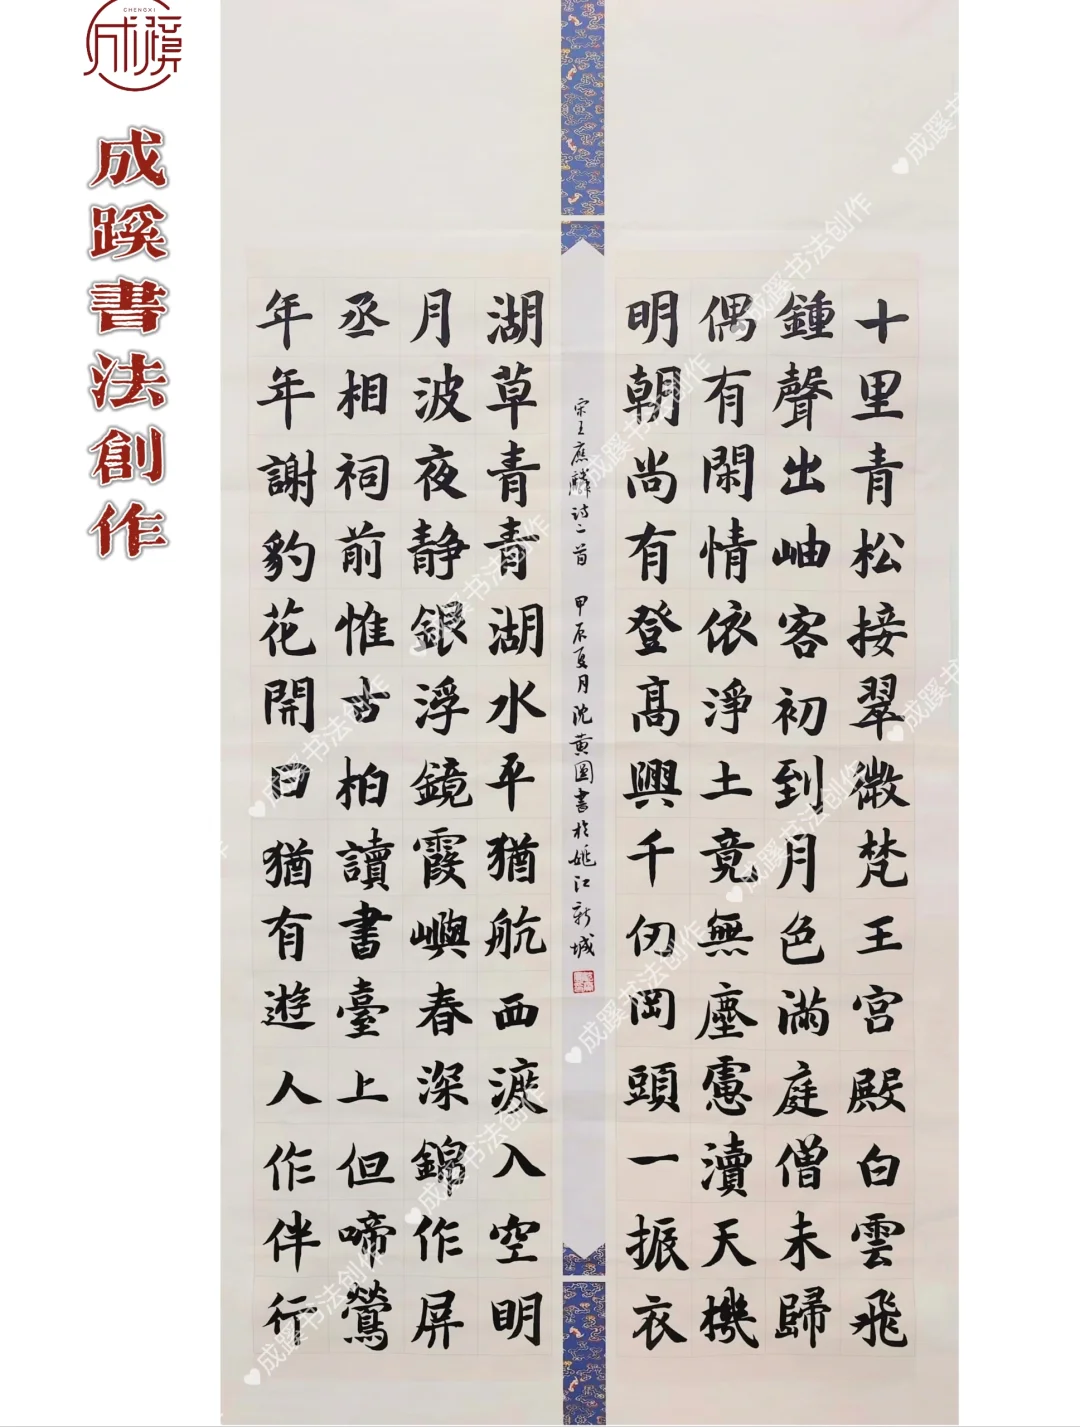 CHENGXI
成蹊
成蹊書法創作
十里青松接翠微梵王宫殿白雲飛
鍾聲出岫客初到月色滿庭僧未歸
偶有閑情依淨土竟無塵慮瀆天機
明朝尚有登高興千仞岡頭一振衣
宋王應麟诗二首 甲辰夏月沈黄圖書於姚江新城
湖草青青湖水平猶航西渡入空明
月波夜静銀浮鏡霞嶼春深錦作屏
丞相祠前惟古柏讀書臺上但啼鶯
年年謝豹花開日猶有遊人作伴行
成蹊书法创作